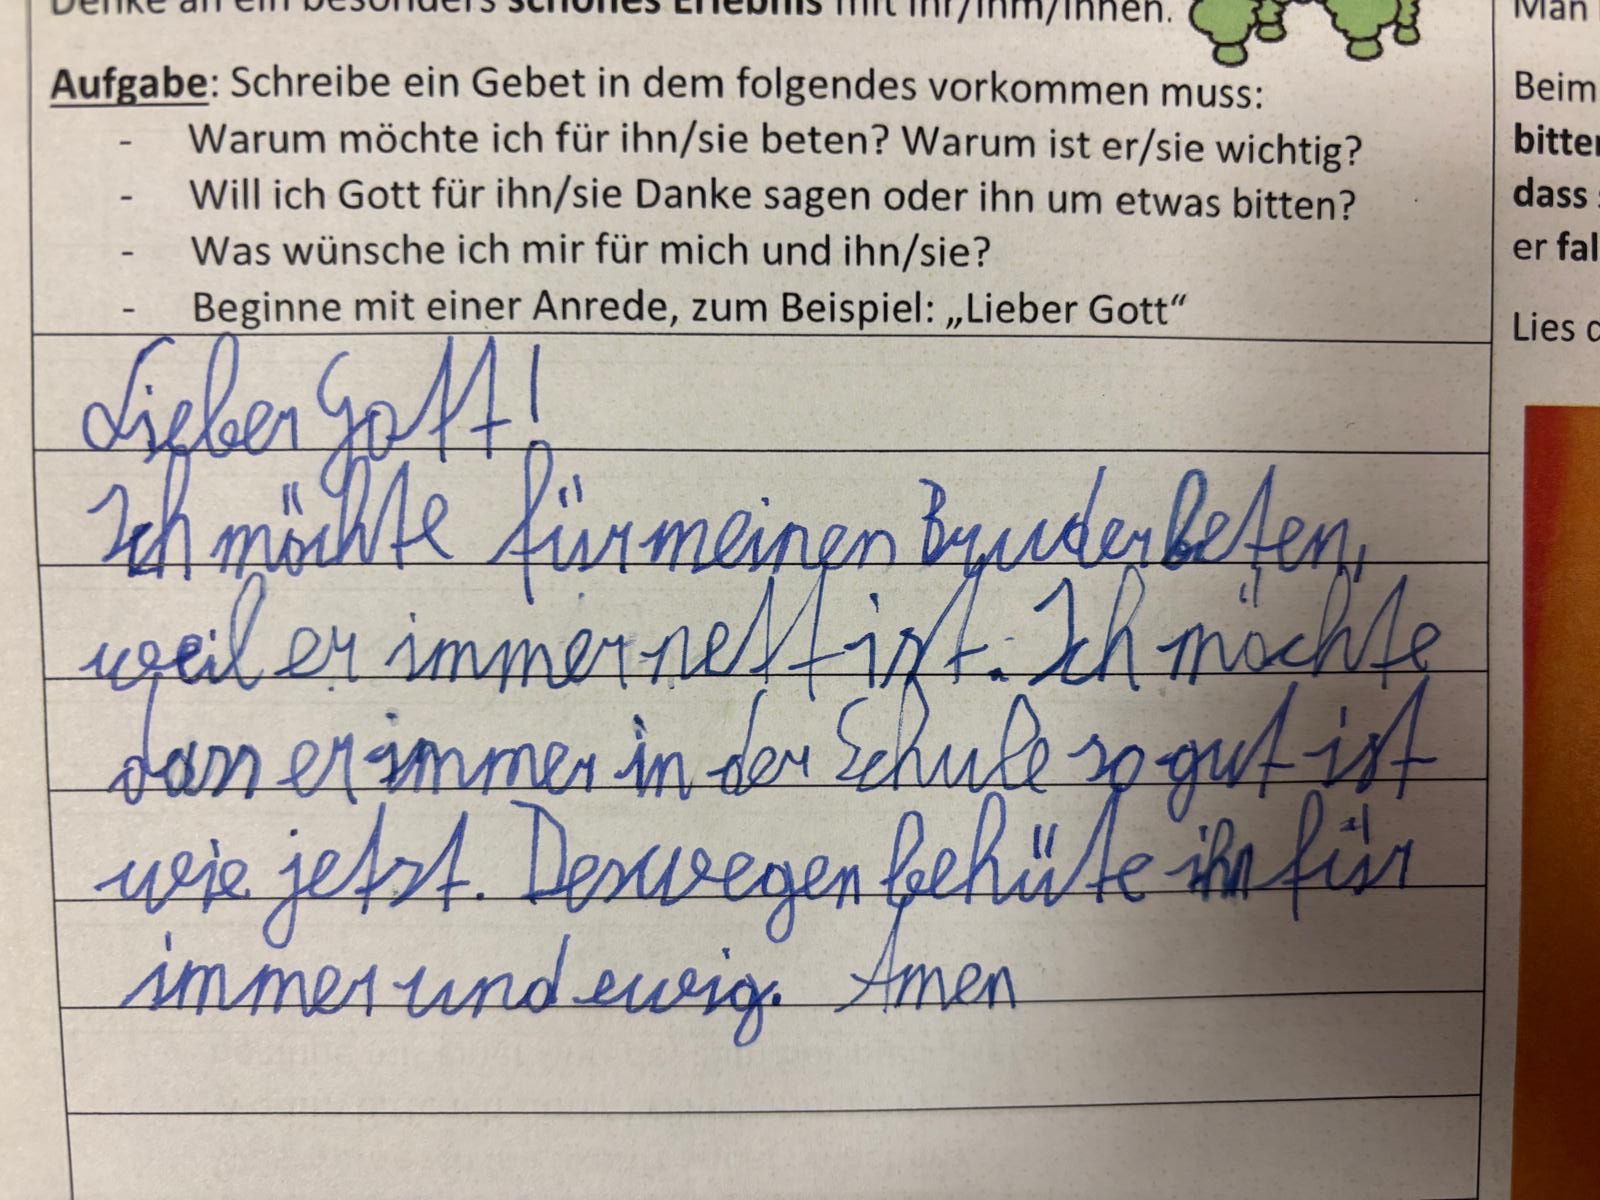 Denke an ein besonders schönes Erlebnis mit ihr/ihm/ihnen.
Aufgabe: Schreibe ein Gebet in dem folgendes vorkommen muss:
- Warum möchte ich für ihn/sie beten? Warum ist er/sie wichtig?
- Will ich Gott für ihn/sie Danke sagen oder ihn um etwas bitten?
- Was wünsche ich mir für mich und ihn/sie?
- Beginne mit einer Anrede, zum Beispiel: „Lieber Gott“
Lieber Gott!
Ich möchte für meinen Bruder beten,
weil er immer nett ist. Ich möchte
dass er immer in der Schule so gut ist
wie jetzt. Deswegen behüte ihn für
immer und ewig. Amen
Man
Beim
bitten
dass
er fal
Lies d